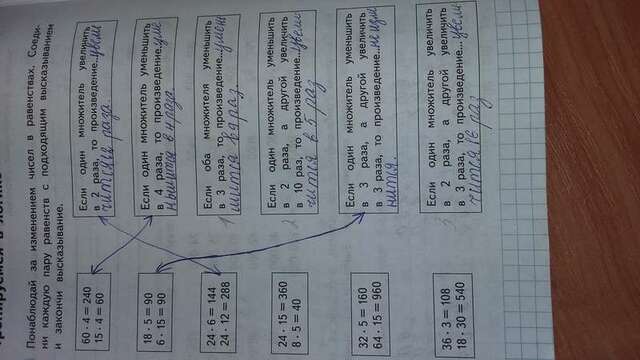 Понаблюдай за изменением чисел в равенствах. Соеди-
ни каждую пару равенств с подходящим высказыванием
и закончи высказывание.
60 · 4 = 240
15 · 4 = 60
Если один множитель увеличить
в 2 раза, то произведение...увели
чится в 2 раза.
18 · 5 = 90
6 · 15 = 90
Если один множитель уменьшить
в 4 раза, то произведение...уме
ньшится в 4 раза
24 · 6 = 144
24 · 12 = 288
Если оба множителя уменьшить
в 3 раза, то произведение...умен
шится в 9 раз.
24 · 15 = 360
8 · 5 = 40
Если один множитель уменьшить
в 2 раза, а другой увеличить
в 10 раз, то произведение...увели
чится в 5 раз
32 · 5 = 160
64 · 15 = 960
Если один множитель уменьшить
в 3 раза, а другой увеличить
в 3 раза, то произведение...не изм
нится.
36 · 3 = 108
18 · 30 = 540
Если один множитель увеличить
в 2 раза, а другой увеличить
в 3 раза, то произведение...увели
чится 6 раз